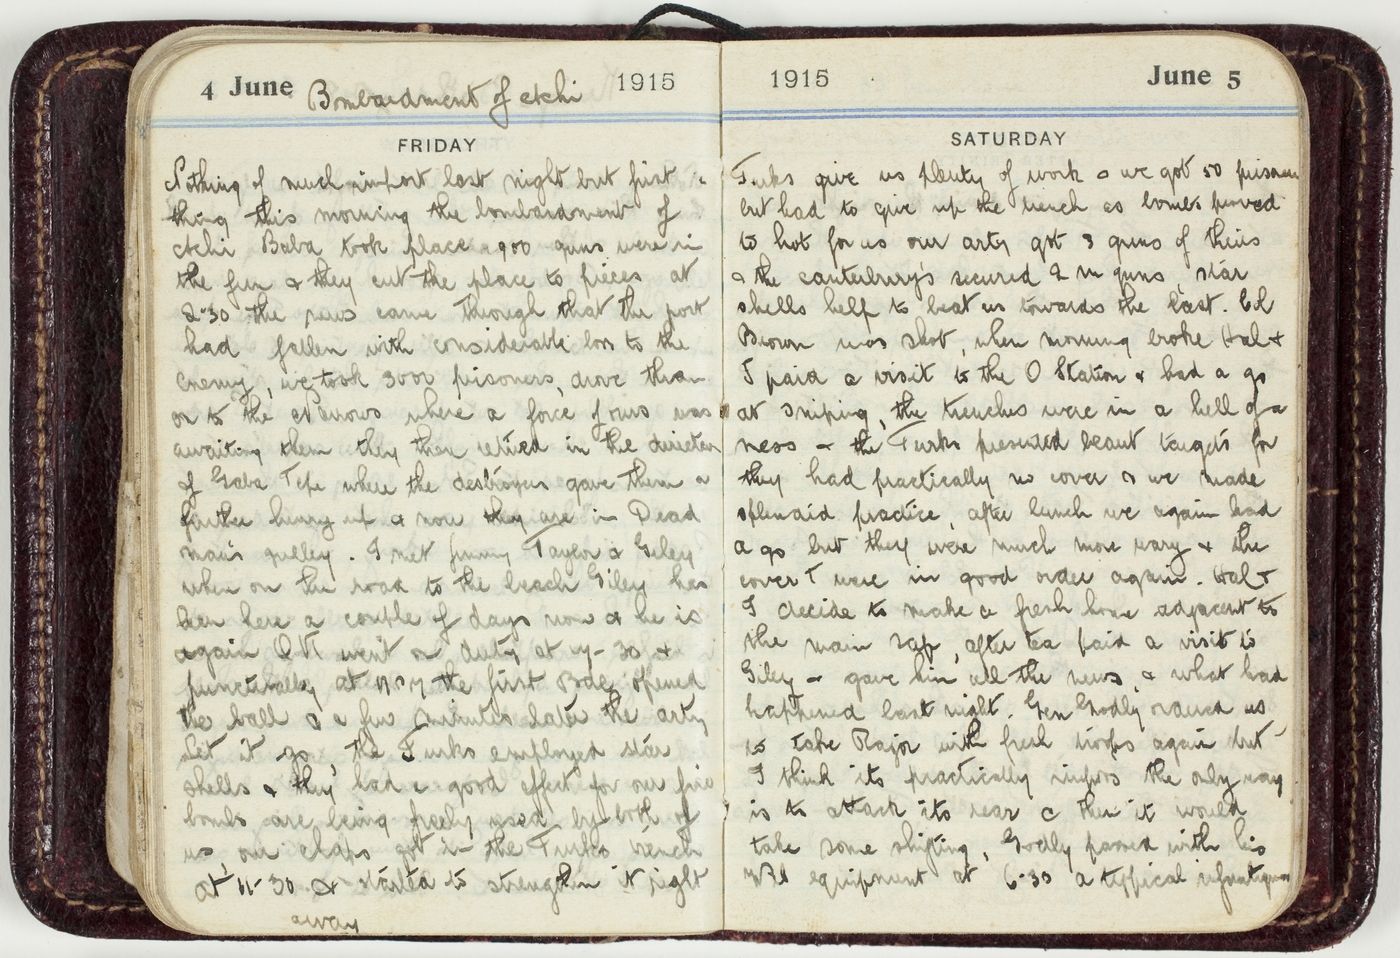 4 June Bombardment of Atchi 1915
FRIDAY
Nothing of much import last night but first
thing this morning the bombardment of
Atchi Baba took place 900 guns were in
the fun & they cut the place to pieces at
2-30 the news came through that the port
had fallen with considerable loss to the
enemy, we took 3000 prisoners, drove them
on to the Narrows where a force of ours was
awaiting them they then retired in the direction
of Gaba Tepe where the destroyers gave them a
further hurry up & now they are in Dead
man's gulley. I met Jimmy Taylor & Giley
when on the road to the beach Giley has
been here a couple of days now & he is
again OK went on duty at 7-30 &
punctually at the first Bde opened
the ball & a few minutes later the arty
let it go, the Turks employed star
shells & they had a good effect for our fire
bombs are being freely used by both of
us, our chaps got in the Turks trench
at 11-30 & started to strengthen it right
away
1915 June 5
SATURDAY
Turks give us plenty of work & we got 50 prisoners
but had to give up the trench as bombs proved
to hot for us our arty got 3 guns of theirs
& the canterbury's secured 2 m guns, star
shells help to beat us towards the last. Col
Brown was shot, when morning broke Hal &
I paid a visit to the O Station & had a go
at sniping, the trenches were in a hell of a
mess & the Turks presented beaut targets for
they had practically no cover & we made
splendid practice, after lunch we again had
a go but they were much more wary & the
cover T were in good order again. Hal &
I decide to make a fresh home adjacent to
the main sap, after tea paid a visit to
Giley & gave him all the news, & what had
happened last night. Gen Godly ordered us
to take Major with fresh troops again but
I think its practically impos the only way
is to attack its rear & then it would
take some shifting, Godly passed with his
equipment at 6-30 a typical infantryman